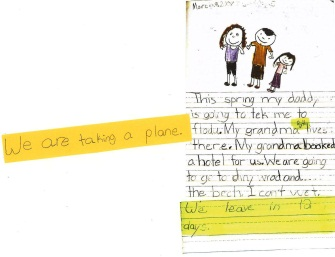 We are taking a plane.
This spring my daddy
is going to tek me to
My grandma lives
there. My grandma booked
a hotel for us. We are going
to go to
the I cant
We leave in 12
days.